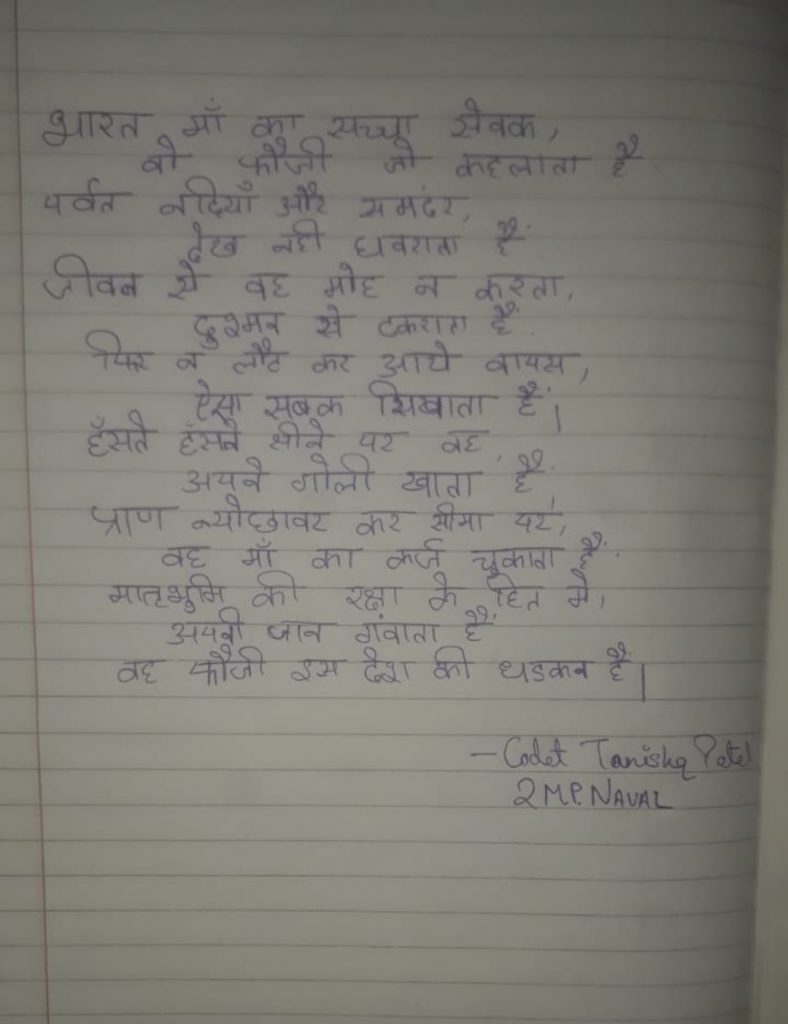 भारत माँ का सच्चा सेवक,
वो फौजी जो कहलाता है
पर्वत नदियाँ और समंदर,
देख नही घबराता हैं
जीवन से वह मोह न करता,
दुश्मन से टकराता हैं.
फिर न लौट कर आये वापस,
ऐसा सबक सिखाता हैं।
हँसते हंसते सीने पर वह,
अपने गोली खाता हैं,
प्राण न्योछावर कर सीमा पर,
वह माँ का कर्ज चुकाता हैं.
मातृभुमि की रक्षा के हित मे,
अपनी जान गंवाता हैं
वह फौजी इस देश की धडकन हैं।
- Cadet Tanishq Patel
2 M.P. NAVAL